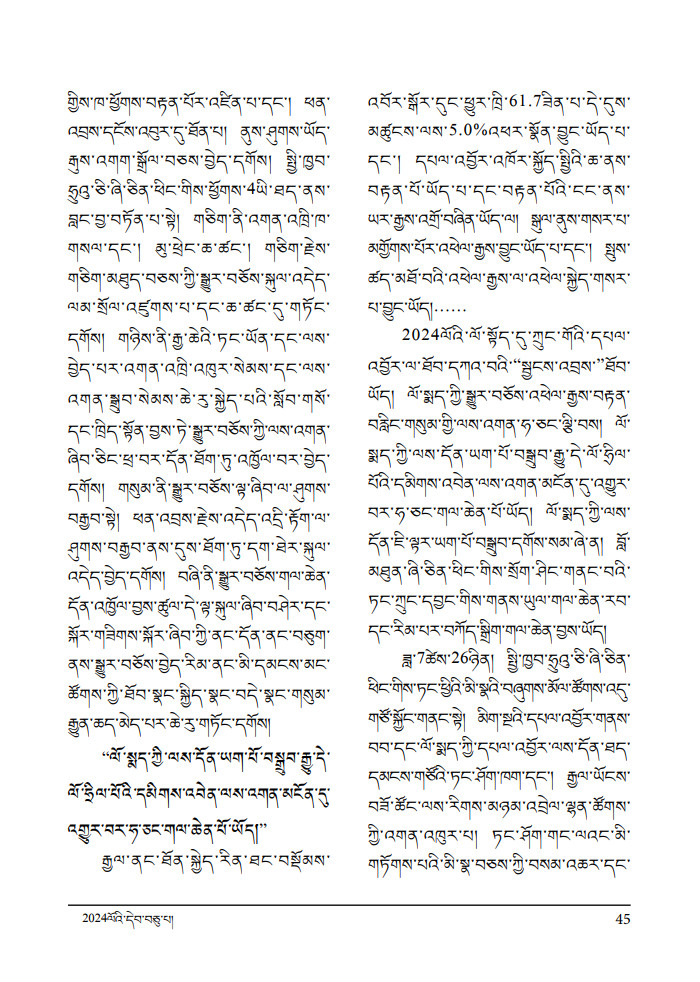 གྱིས་ཁ་ཕྱོགས་བརྟན་པོར་འཛིན་པ་དང་། ཕན་
འབྲས་དངོས་འབུར་དུ་ཐོན་པ། ནུས་ཤུགས་ཡོད་
རྒུས་འགག་སྒྲོལ་བཅས་བྱེད་དགོས། སྤྱི་ཁྱབ་
ཧྲུའུ་ཅི་ཞི་ཅིན་ཕིང་གིས་ཕྱོགས་4ཡི་ཐད་ནས་
བླང་བྱ་བཏོན་པ་སྟེ། གཅིག་ནི་འགན་འཁྲི་ཁ་
གསལ་དང་། མུ་ཕྲེང་ཆ་ཚང་། གཅིག་རྗེས་
གཅིག་མཐུད་བཅས་ཀྱི་སྒྱུར་བཅོས་སྐུལ་འདེད་
ལམ་སྲོལ་འཛུགས་པ་དང་ཆ་ཚང་དུ་གཏོང་
དགོས། གཉིས་ནི་རྒྱ་ཆེའི་ཏང་ཡོན་དང་ལས་
བྱེད་པར་འགན་འཁྲི་འཁུར་སེམས་དང་ལས་
འགན་སྒྲུབ་སེམས་ཆེ་རུ་སྐྱེད་པའི་སློབ་གསོ་
དང་ཁྲིད་སྟོན་བྱས་ཏེ་སྒྱུར་བཅོས་ཀྱི་ལས་འགན་
ཞིབ་ཅིང་ཕྲ་བར་དོན་ཐོག་ཏུ་འཁྱོལ་བར་བྱེད་
དགོས། གསུམ་ནི་སྒྱུར་བཅོས་ལྟ་ཞིབ་ལ་ཤུགས་
བརྒྱབ་སྟེ། ཕན་འབྲས་རྗེས་འདེད་འདྲི་རྟོག་ལ་
ཤུགས་བརྒྱབ་ནས་དུས་ཐོག་ཏུ་དག་ཐེར་སྐུལ་
འདེད་བྱེད་དགོས། བཞི་ནི་སྒྱུར་བཅོས་གལ་ཆེན་
དོན་འཁྱོལ་བྱས་ཚུལ་དེ་ལྟ་སྐུལ་ཞིབ་བཤེར་དང་
སྐོར་གཟིགས་སྐོར་ཞིབ་ཀྱི་ནང་དོན་ནང་བཅུག་
ནས་སྒྱུར་བཅོས་བྱེད་རིམ་ནང་མི་དམངས་མང་
ཚོགས་ཀྱི་ཐོབ་སྣང་སྐྱིད་སྣང་བདེ་སྣང་གསུམ་
རྒྱུན་ཆད་མེད་པར་ཆེ་རུ་གཏོང་དགོས།
“ལོ་སྨད་ཀྱི་ལས་དོན་ཡག་པོ་བསྒྲུབ་རྒྱུ་དེ་
ལོ་ཧྲིལ་པོའི་དམིགས་འབེན་ལས་འགན་མངོན་དུ་
འགྱུར་བར་ཧ་ཅང་གལ་ཆེན་པོ་ཡོད།”
རྒྱལ་ནང་ཐོན་སྐྱེད་རིན་ཐང་བསྡོམས་
འབོར་སྒོར་དུང་ཕྱུར་ཁྲི་61.7ཟིན་པ་དེ་དུས་
མཚུངས་ལས་5.0%འཕར་སྣོན་བྱུང་ཡོད་པ་
དང་། དཔལ་འབྱོར་འཁོར་སྐྱོད་སྤྱིའི་ཆ་ནས་
བརྟན་པོ་ཡོད་པ་དང་བརྟན་པོའི་ངང་ནས་
ཡར་རྒྱས་འགྲོ་བཞིན་ཡོད་ལ། སྒུལ་ནུས་གསར་པ་
མགྱོགས་པོར་འཕེལ་རྒྱས་བྱུང་ཡོད་པ་དང་། སྤུས་
ཚད་མཐོ་བའི་འཕེལ་རྒྱས་ལ་འཕེལ་སྐྱེད་གསར་
པ་བྱུང་ཡོད།……
2024ལོའི་ལོ་སྟོད་དུ་ཀྲུང་གོའི་དཔལ་
འབྱོར་ལ་ཐོབ་དཀའ་བའི་“སྦྱངས་འབྲས་”ཐོབ་
ཡོད། ལོ་སྨད་ཀྱི་སྒྱུར་བཅོས་འཕེལ་རྒྱས་བརྟན་
བརླིང་གསུམ་གྱི་ལས་འགན་ཧ་ཅང་ལྕི་བས། ལོ་
སྨད་ཀྱི་ལས་དོན་ཡག་པོ་བསྒྲུབ་རྒྱུ་དེ་ལོ་ཧྲིལ་
པོའི་དམིགས་འབེན་ལས་འགན་མངོན་དུ་འགྱུར་
བར་ཧ་ཅང་གལ་ཆེན་པོ་ཡོད། ལོ་སྨད་ཀྱི་ལས་
དོན་ཇི་ལྟར་ཡག་པོ་བསྒྲུབ་དགོས་སམ་ཞེ་ན། བློ་
མཐུན་ཞི་ཅིན་ཕིང་གིས་སྲོག་ཤིང་གནང་བའི་
ཏང་ཀྲུང་དབྱང་གིས་གནས་ཡུལ་གལ་ཆེན་རབ་
དང་རིམ་པར་བཀོད་སྒྲིག་གལ་ཆེན་བྱས་ཡོད།
ཟླ་7ཚེས་26ཉིན། སྤྱི་ཁྱབ་ཧྲུའུ་ཅི་ཞི་ཅིན་
ཕིང་གིས་ཏང་ཕྱིའི་མི་སྣའི་བཞུགས་མོལ་ཚོགས་འདུ་
གཙོ་སྐྱོང་གནང་སྟེ། མིག་སྔའི་དཔལ་འབྱོར་གནས་
བབ་དང་ལོ་སྨད་ཀྱི་དཔལ་འབྱོར་ལས་དོན་ཐད་
དམངས་གཙོའི་ཏང་ཤོག་ཁག་དང་། རྒྱལ་ཡོངས་
བཟོ་ཚོང་ལས་རིགས་མཉམ་འབྲེལ་ལྷན་ཚོགས་
ཀྱི་འགན་འཁུར་པ། ཏང་ཤོག་གང་ལའང་མི་
གཏོགས་པའི་མི་སྣ་བཅས་ཀྱི་བསམ་འཆར་དང་
2024ལོའི་དེབ་བཅུ་པ།
45